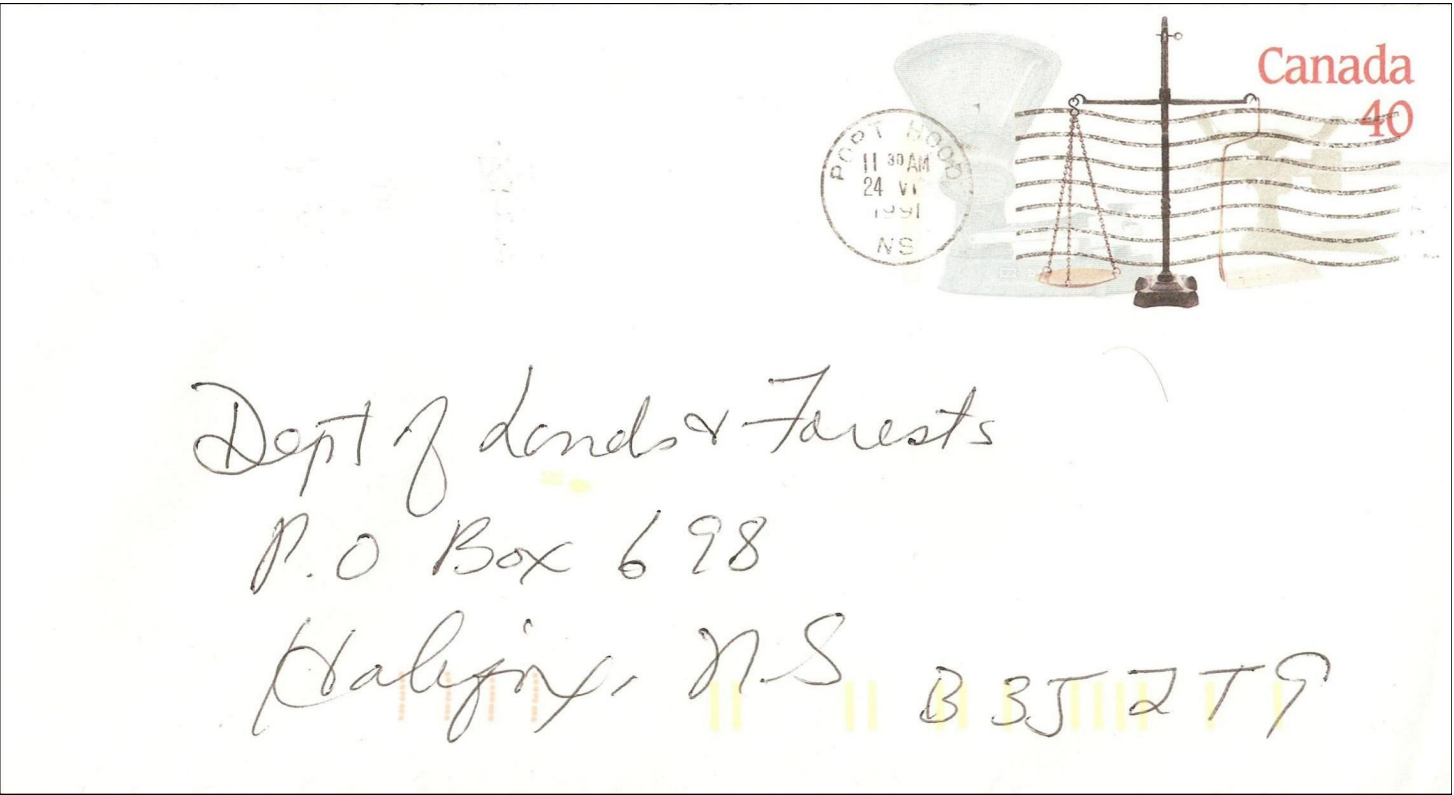 Canada
40
PORT HOOD
11 30 AM
24 VI
1991
NS
Dept of Lands & Forests
P.O Box 698
Halifax, N.S B3J 2T9